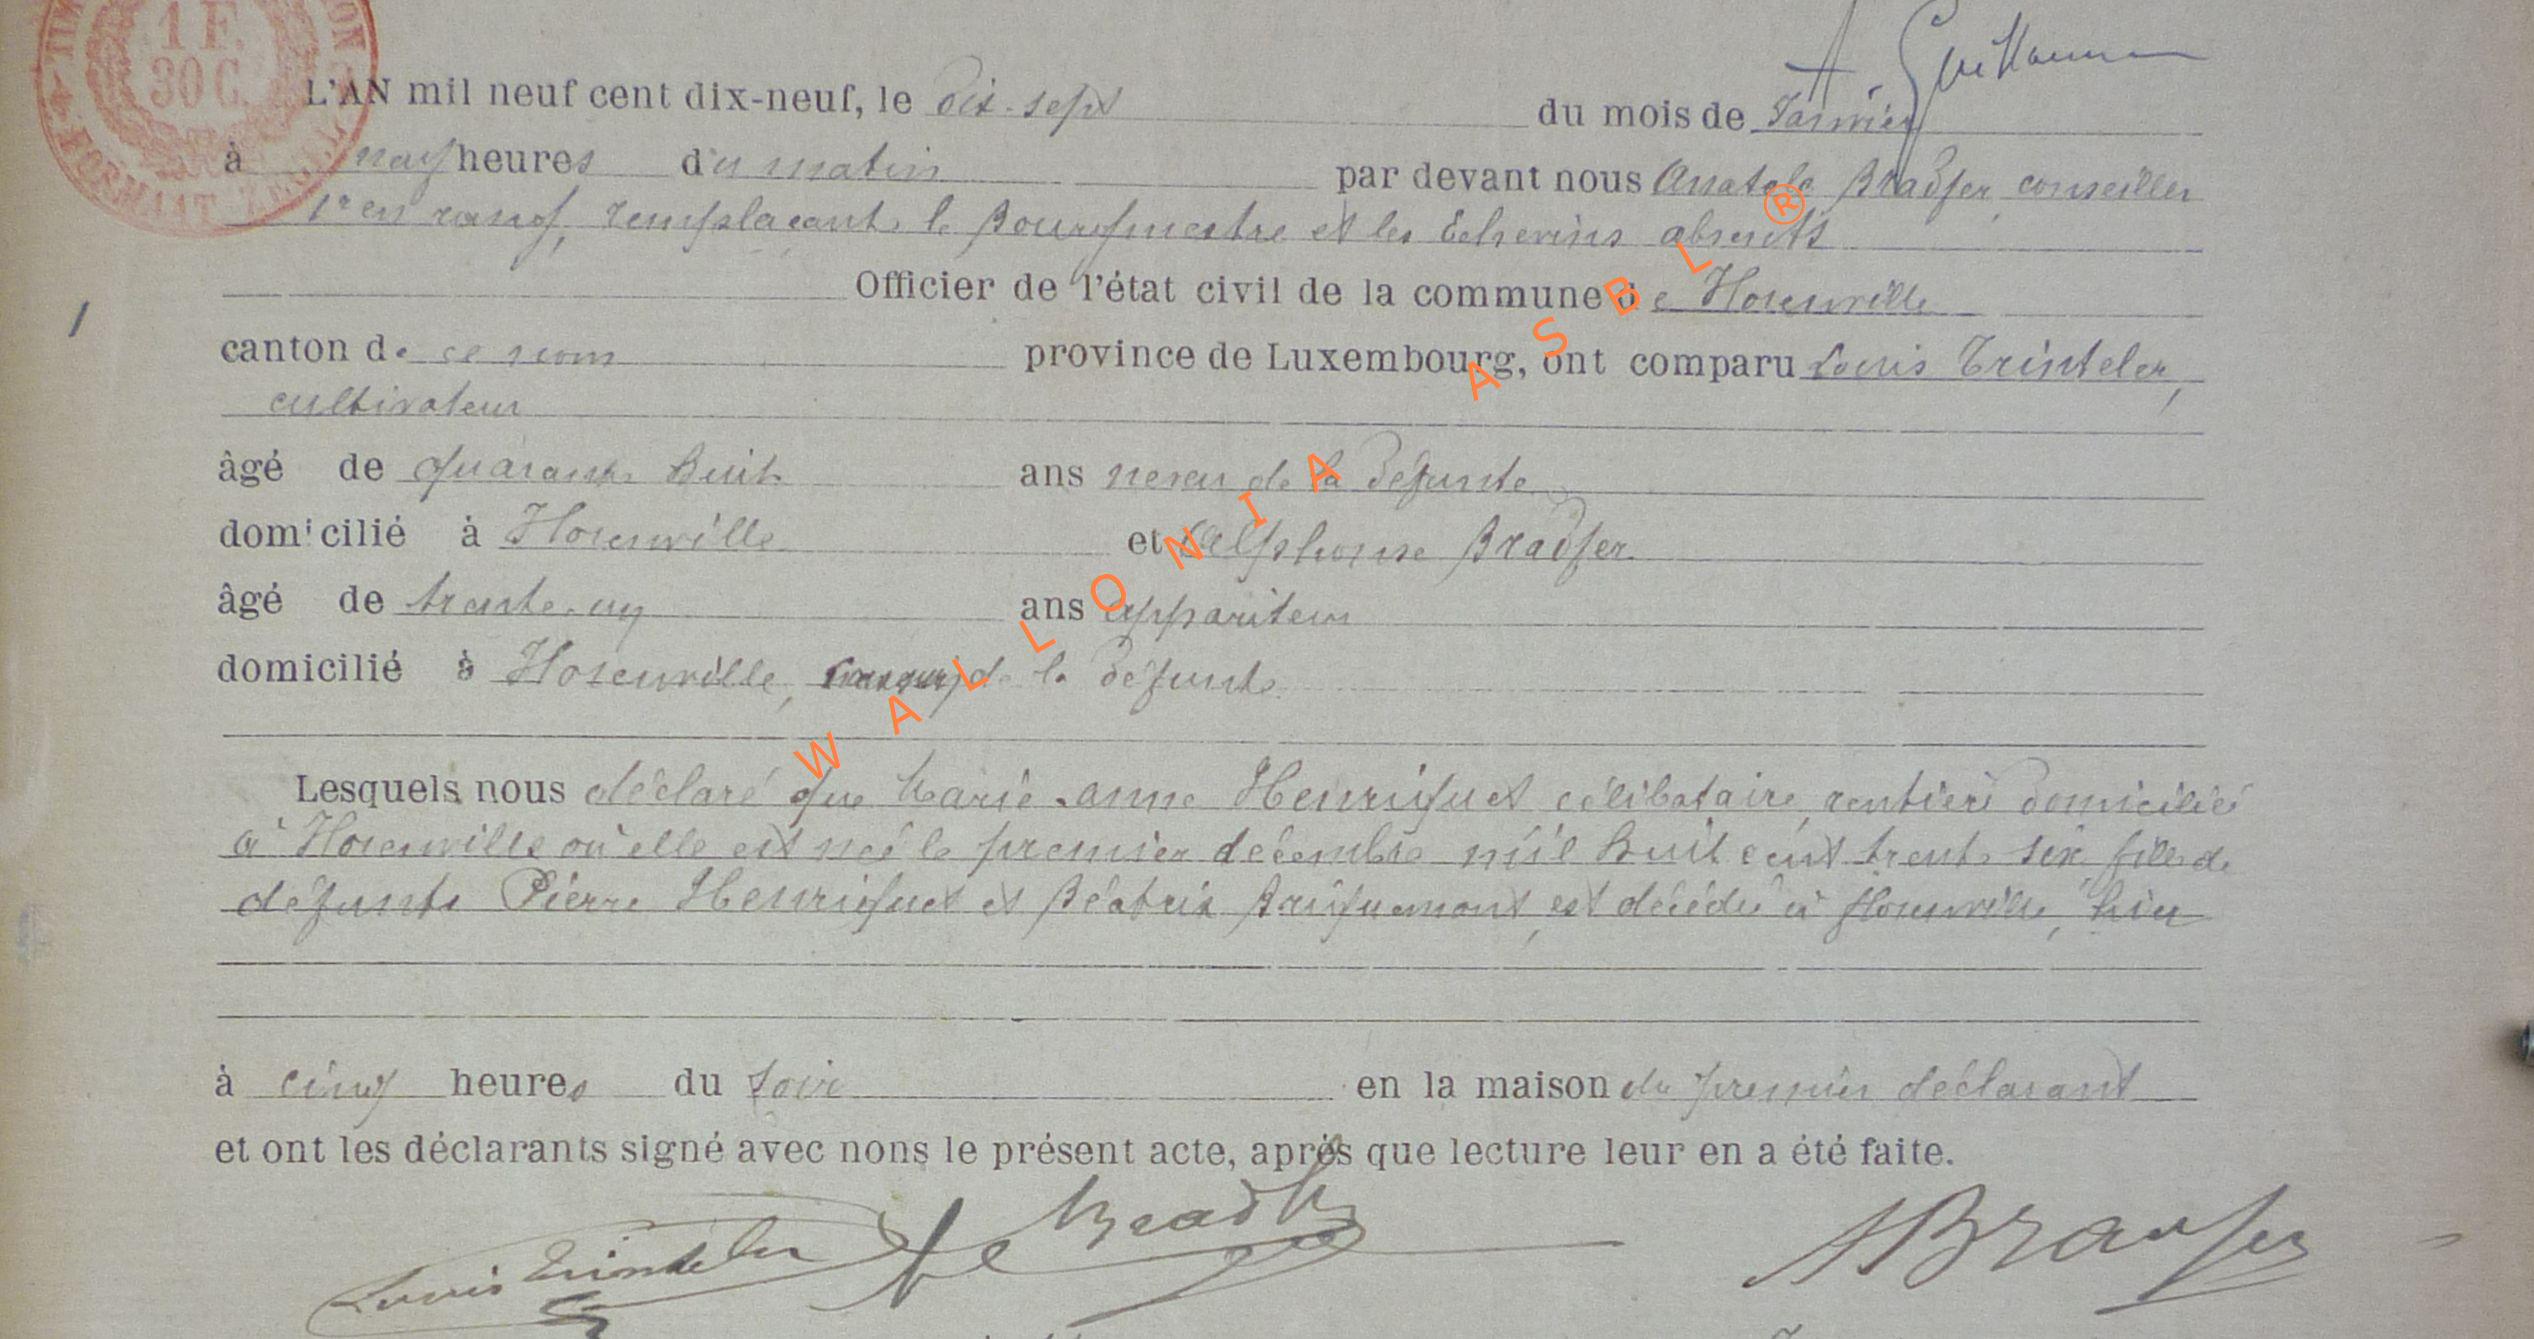 1 F.
30 C.
A. Guillaume
L'AN mil neuf cent dix-neuf, le dix-sept du mois de Janvier
à neuf heures du matin par devant nous Anatole Bradfer, conseiller
1er en rang, remplaçant le Bourgmestre et les Echevins absents
Officier de l'état civil de la commune de
1
canton de ce nom province de Luxembourg, ont comparu Louis Trinteler,
cultivateur
âgé de quarante huit ans neveu de la défunte
domicilié à et Alphonse Bradfer
âgé de trente-un ans appariteur
domicilié à de la défunte
Lesquels nous déclaré que Marie-anne Henriquet célibataire, rentière domiciliée
à où elle est née le premier décembre mil huit cent trente six, fille de
défunts Pierre Henriquet et Béatrix est décédée à hier
à cinq heures du soir en la maison du premier déclarant
et ont les déclarants signé avec nons le présent acte, après que lecture leur en a été faite.
Louis Trinteler Bradfer ABradfer
WALLONIA ASBL ®